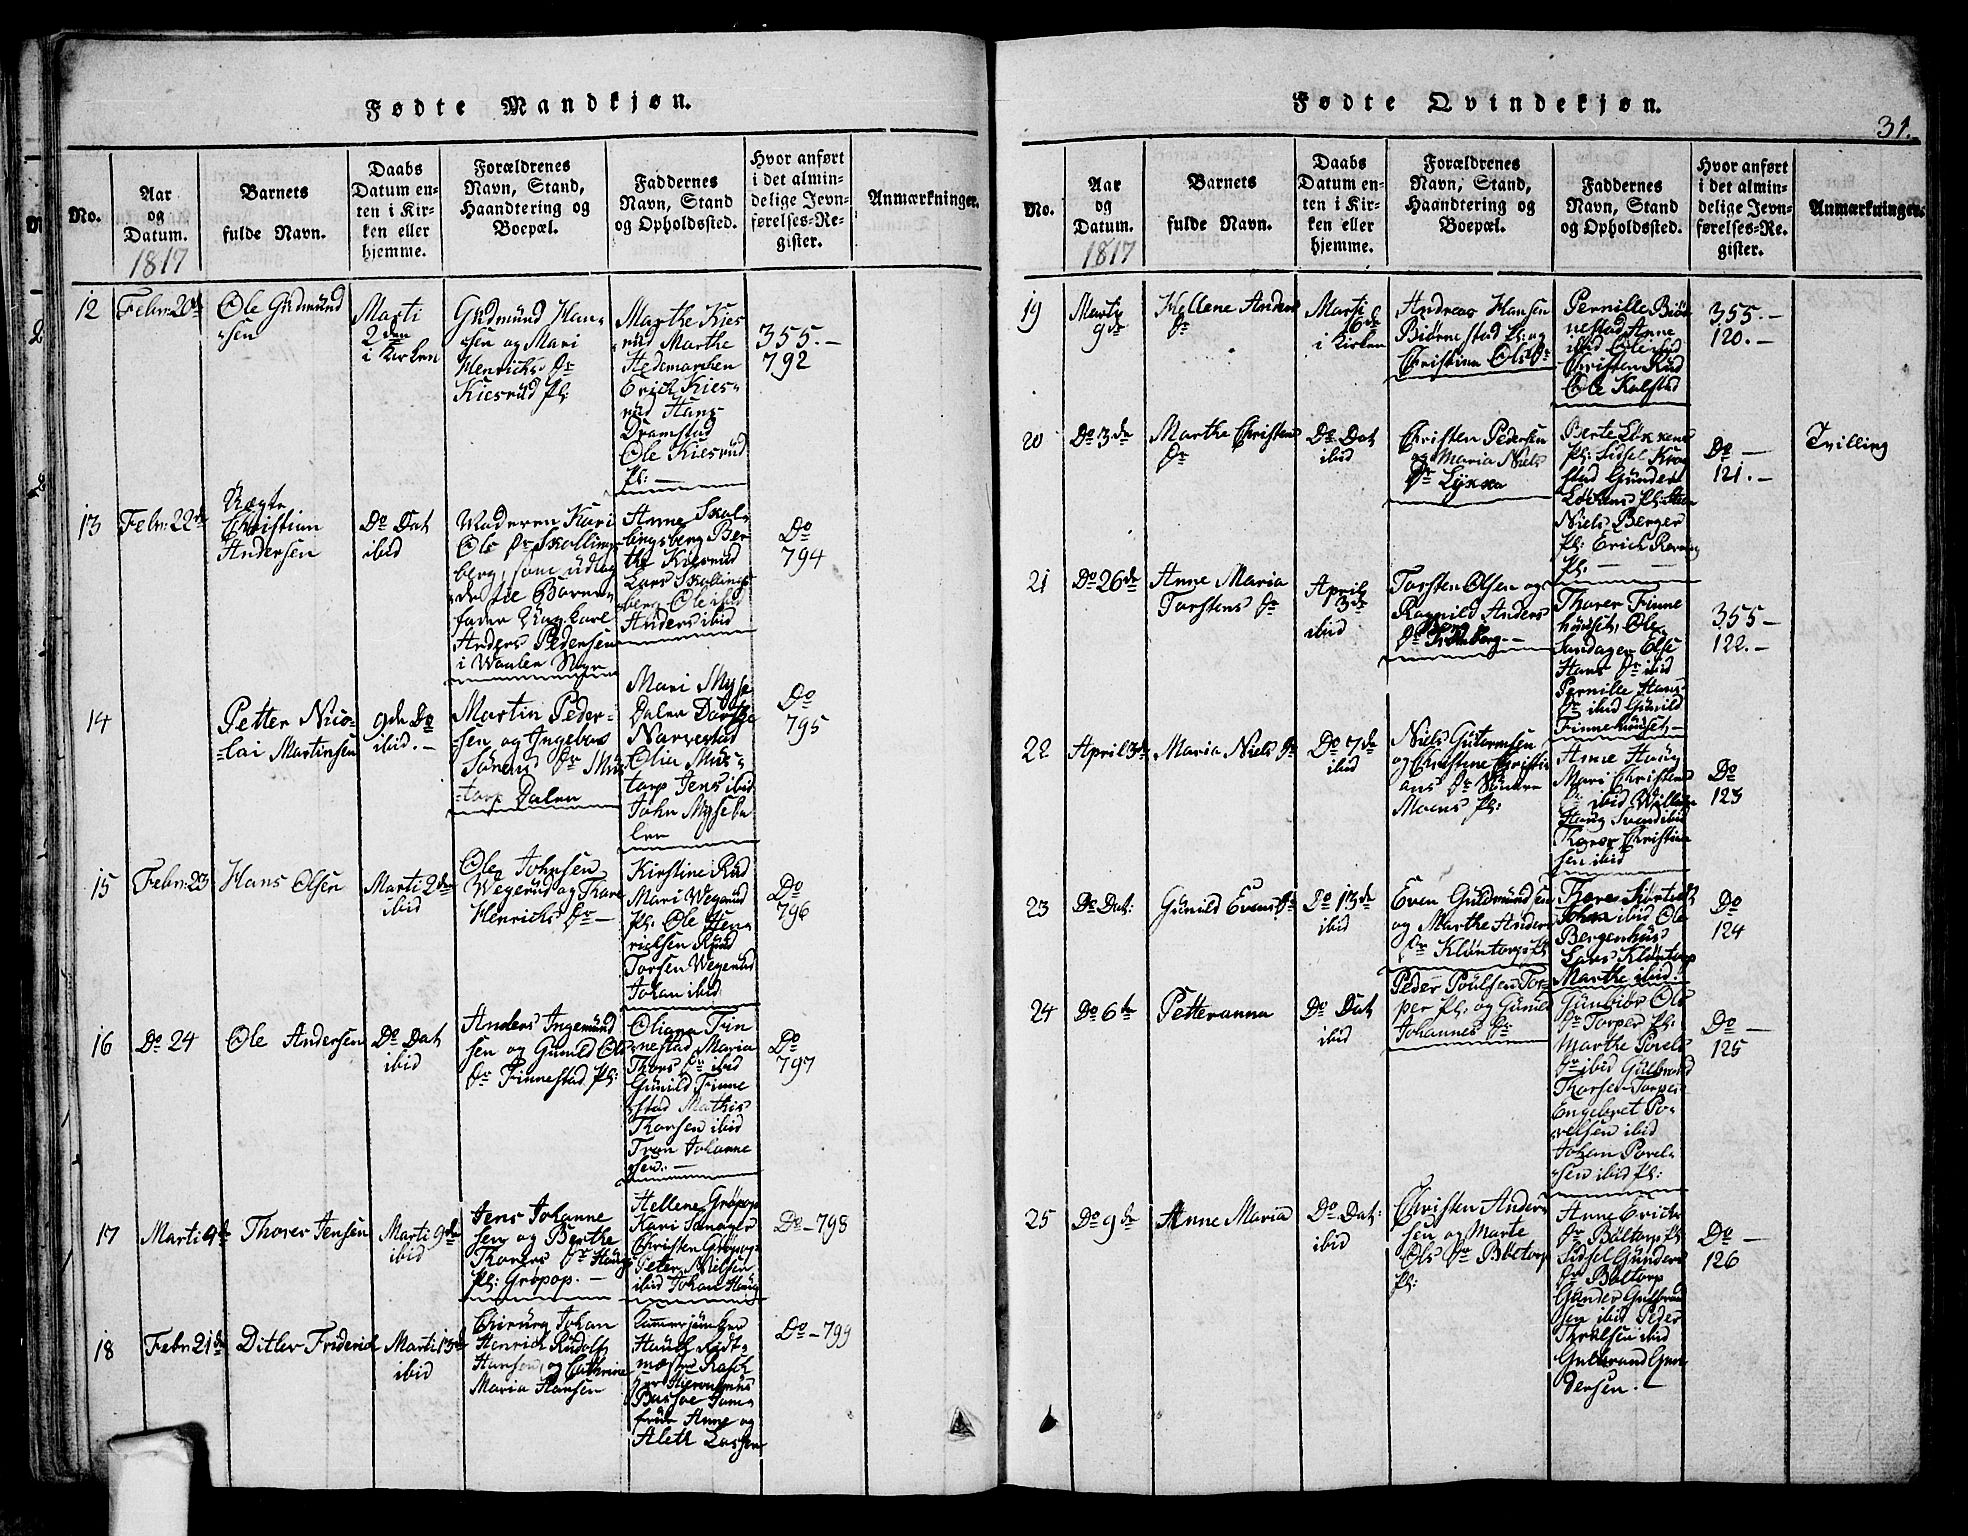 Fødte Mandkjøn.
No.
Aar
og
Datum.
1817
Barnets
fulde Navn.
Daabs
Datum en-
ten i Kir-
ken eller
hjemme.
Forældrenes
Navn, Stand,
Haandtering og
Boepæl.
Faddernes
Navn, Stand
og Opholdssted.
Hvor anført
i det almin-
delige Jevn-
førelses-Re-
gister.
Anmærkninger.
12
Febr: 20de
Ole Gudmund
sen
Marti
2den
i Kirken
Gudmund Han-
sen og Mari
Henrichs Dr
Kiesrud Pl:
Marthe Kies
rud Marthe
Hedemarken
Erich Kies-
rud Hans
Dramstad
Ole Kiesrud
Pl: —
355. —
792
13
Febr: 22de
Uægte
Christian
Andersen
Do Dat
ibid
Moderen Kari
Ols Dr Skollings
berg, som udlag
de til Barne-
fader Ungkarl
Anders Pedersen
i Waaler
Anne Skol-
lingsberg Ber
the Kiesrud
Lars Skollings
berg Ole ibid
Anders ibid
Do
794
14
Petter Nico-
lai Martinsen
9de Do
ibid. —
Martin Peder-
sen og Ingebor
Sørens Dr Mus
torp Dalen
Mari Myse
Dalen Dorthe
Narvestad
Olia Mus-
torp Jens ibid
John Myseda
len
Do
795
15
Febr: 23
Hans Olsen
Marti 2den
ibid
Ole Johnsen
Wegerud og Thore
Henrichs Dr —
Kirstine Rud
Mari Wegerud
Pl: Ole Hen
richsen Rud
Torsten Wegerud
Johan ibid
Do
796
16
Do 24
Ole Andersen
Do Dat
ibid
Anders Ingemund
sen og Gunild Ols
Dr Finnestad Pl:
Oliana Fin
nestad Maria
Thors Dr ibid
Gunild Finne
stad Mathis
Thorsen ibid
Tron Johanne
sen: —
Do
797
17
Marti 9de
Thorer Jensen
Marti 9de
ibid
Jens Johanne
sen og Berthe
Thorers Dr Haug
Pl: Grøpop. —
Hellene Grøpop
Kari Sandager
Christen Grøpop
Peter Nielsen
ibid Johan Haug
Do — 798
18
Febr: 21de
Ditlev Friderich
Marti 13de
ibid
Chirurg Johan
Henrich Rudolf
Hansen, og Cathrine
Maria Hansen
Cammerjunker
Hauch Ridt-
mester Rasch
Hr Hieronimus
Bassøe Jom-
fruer Anne og
Aleth Lassen
Do — 799
Fødte Qvindekjøn.
31.
No.
Aar
og
Datum.
1817
Barnets
fulde Navn.
Daabs
Datum en-
ten i Kir-
ken eller
hjemme.
Forældrenes
Navn, Stand,
Haandtering og
Boepæl.
Faddernes
Navn, Stand
og Opholdssted.
Hvor anført
i det almin-
delige Jevn-
førelses-Re-
gister.
Anmærkninger.
19
Marti
9de
Hellene Anders
Dr
Marti
16de
i Kirken
Andreas Hansen
Biørnestad Pl: og
Christina Ols Dr
Pernille Biør
nestad Anne
ibid Ole ibid
Christen Rud
Ole Kolstad
355. —
120. —
20
Do 3de
Marthe Christens
Dr
Do Dat
ibid
Christen Pedersen
og Maria Niels
Dr Løkka
Berte Løkkens
Pl: Sidsel Krog
stad Gunder
Løkkens Pl:
Niels Berger
Pl: Erich
Pl: — —
Do —
121. —
Tvilling
21
Do 26de
Anne Maria
Torstens Dr
April
3de
ibid
Torsten Olsen og
Ragnild Anders
Dr
Thorer Finne
huuset, Ole
Sandager Else
Hans Dr ibid
Pernille Hans
Dr ibid Gunild
Finnehuuset —
355 —
122. —
22
April 3de
Maria Niels Dr
Do 7de
ibid
Niels Gutormsen
og Christine Christi
ans Dr Søndre
Moens Pl:
Anne Haug
Mari Christens
Dr ibid Willum
Haug Svend ibid
Thorer Christian
sen ibid
Do
123
23
Do Dat:
Gunild Evens Dr
Do 13de
ibid
Even Guldmundsen
og Marthe Anders
Dr Kløntorps Pl
Thore
John ibid Ole
Bergenhus
Lars Kløntorp
Marthe ibid:
Do
124
24
Do 6te
Petteranna
Do Dat
ibid
Peder Poulsen Tor-
per Pl: og Gunild
Johannes Dr
Gunbiør Ols
Dr Torper Pl:
Marthe Povels
Dr ibid Gulbrand
Thorsen Torper
Engebret Po-
velsen ibid
Johan Povel-
sen ibid Pl:
Do —
125
25
Do 9de
Anne Maria
Do Dat:
ibid
Christen Ander-
sen og Marte
Ols Dr Bøltorp
Pl:
Anne Erichs
Dr Bøltorp Pl
Sidsel Gunders
Dr Bøltorp
Gunder Gulbrand
sen ibid Peder
Throlsen ibid
Gulbrand Gun
dersen. —
Do —
126